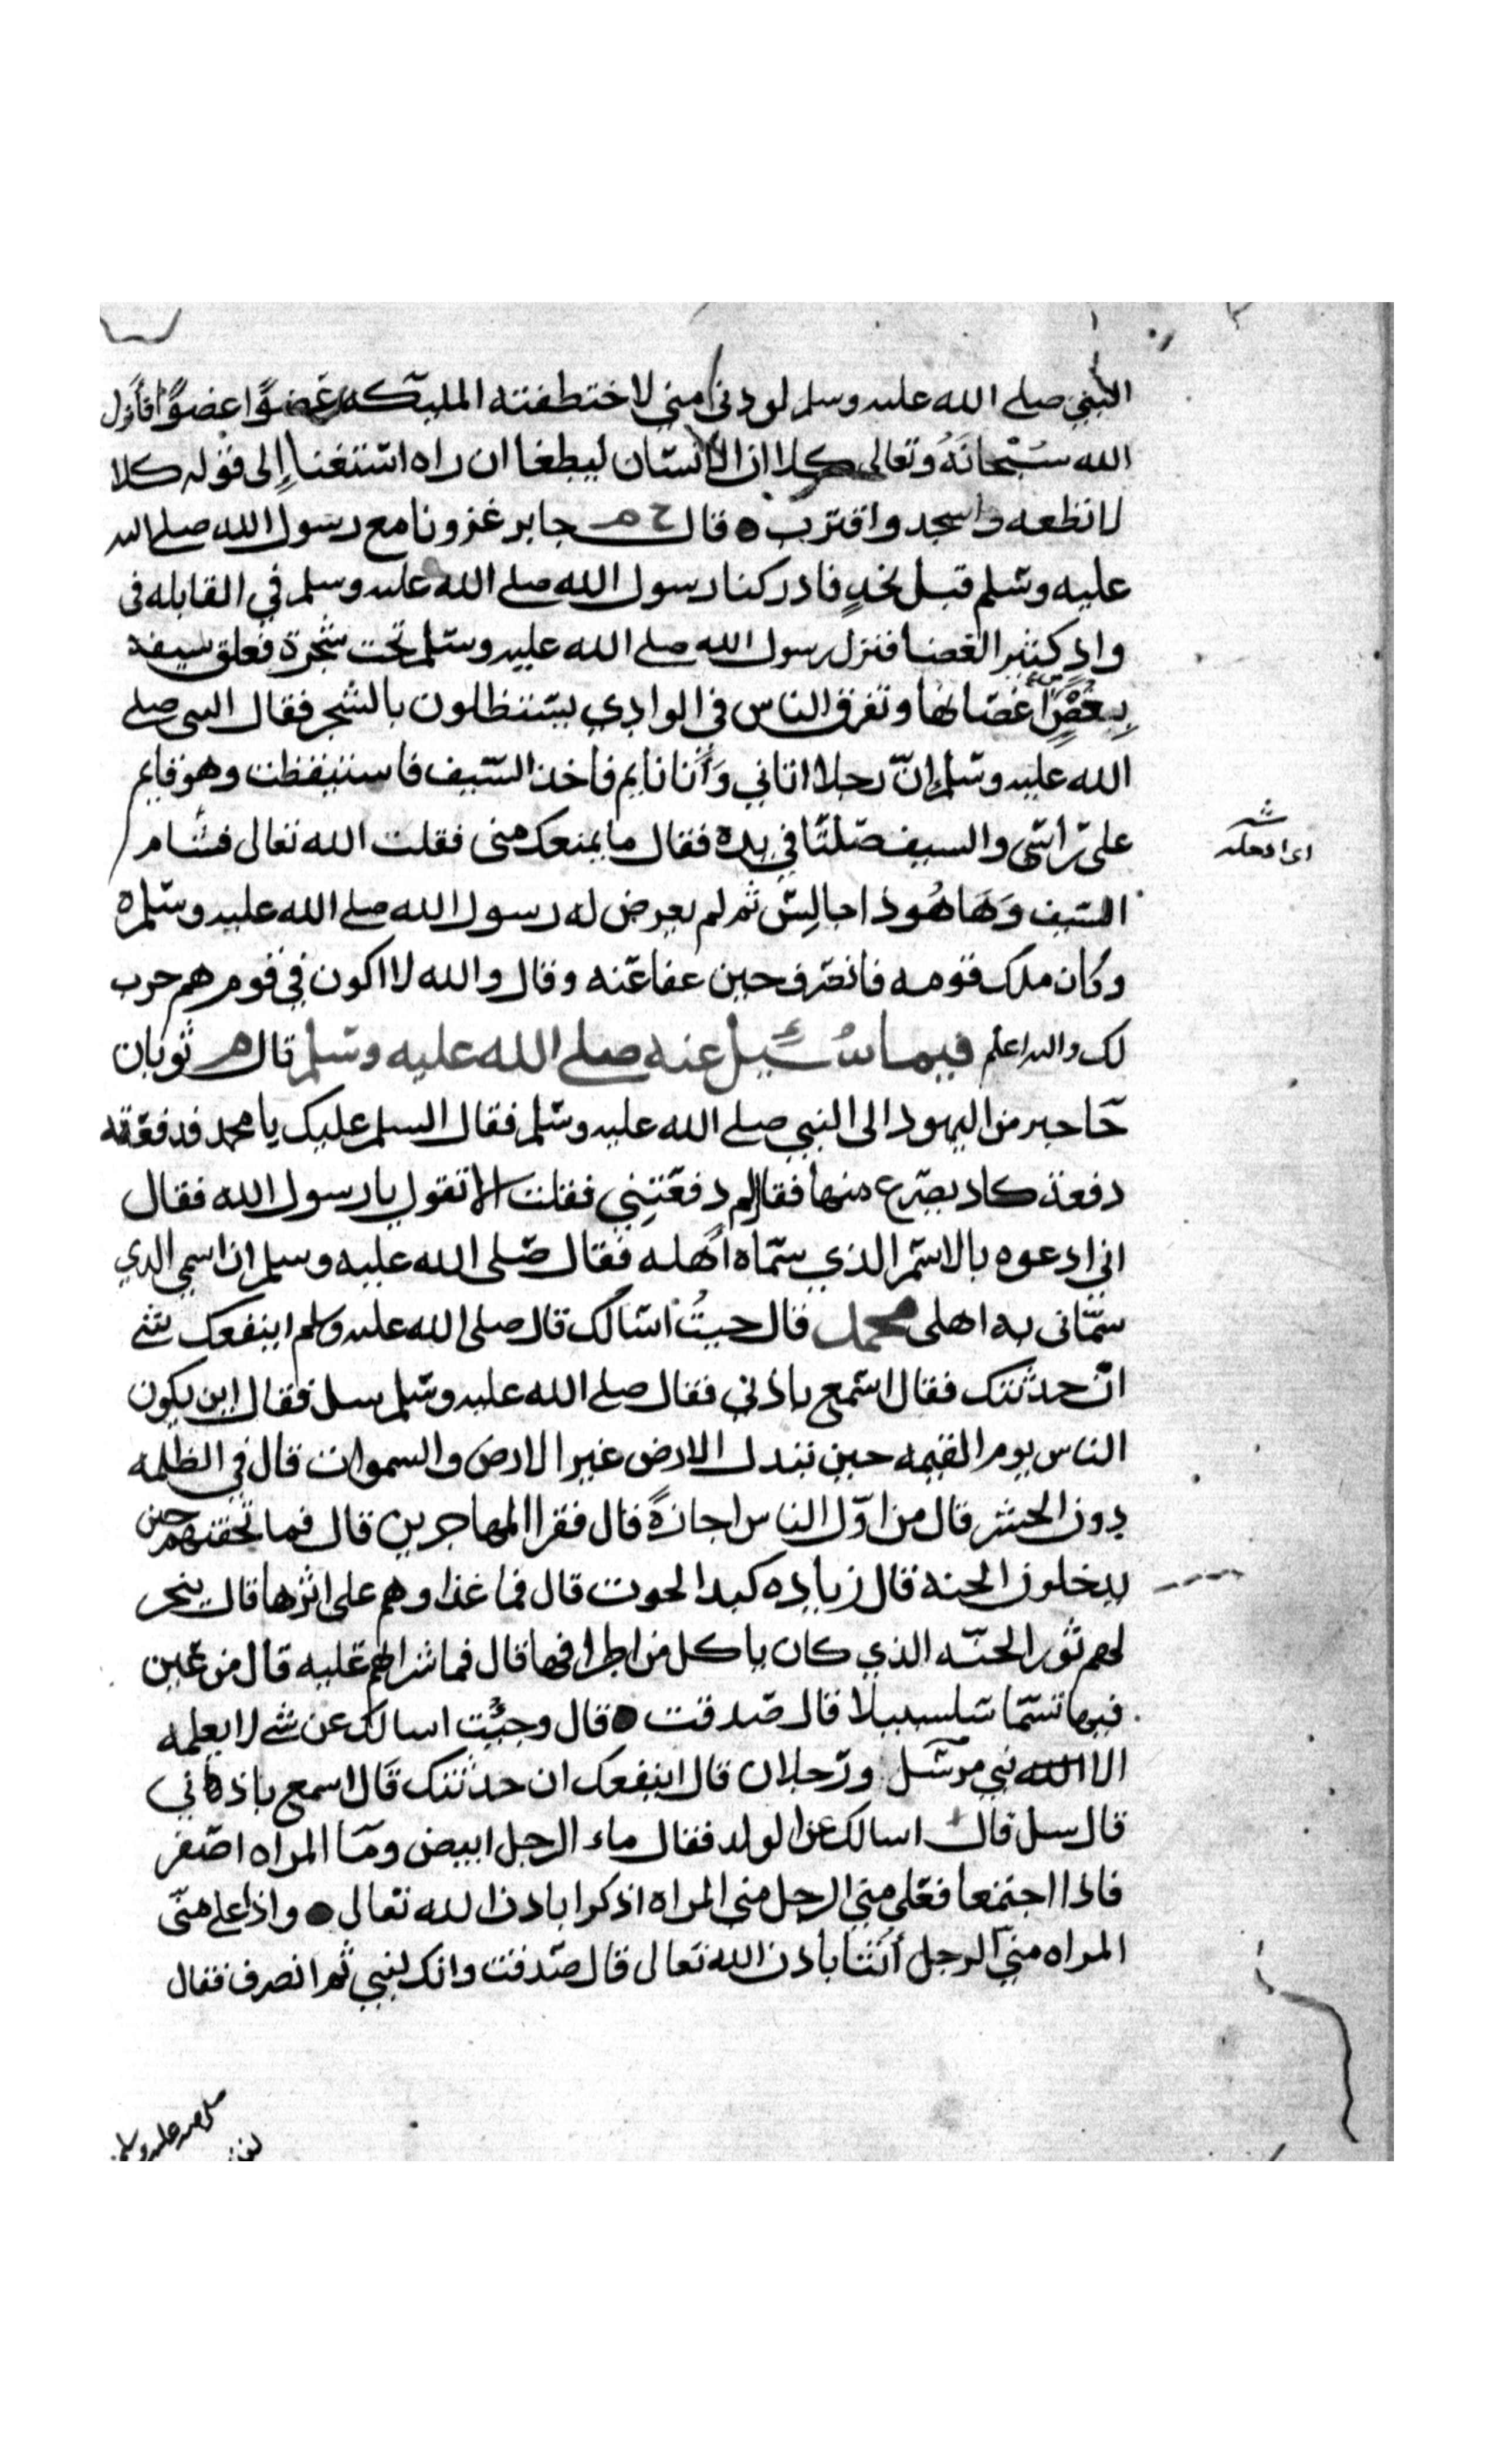 النبي صلى الله عليه وسلم لو دنى مني لاختطفته المليكه عضوًا عضوًا فانزل
الله سُبْحانَهُ وتعالى كلا ان الانسان ليطغا ان راه استغنا إلى قوله كلا
لا تطعه واسجد واقترب ٥ قال خ م جابر غزونا مع رسول الله صلى الله
عليه وسلم قبل نجدٍ فادركنا رسول الله صلى الله عليه وسلم في القابله في
وادٍ كثير العضا فنزل رسول الله صلى الله عليه وسلم تحت شجرة فعلق سيفه
بِغُصْنٍ من أغصانها وتفرق الناس في الوادي يستظلون بالشجر فقال النبي صلى
الله عليه وسلم إنّ رجلا اتاني وَأَنا نايم فاخذ السيف فاستيقظت وهو قايم
على راسي والسيف صلتًا في يده فقال ما يمنعك منى فقلت الله تعالى فشام
السيف وَهَا هُو ذا جالِس ثم لم يعرض له رسول الله صلى الله عليه وسلم ٥
وكان ملك قومه فانصرف حين عفا عنه وقال والله لا اكون في قوم هم حرب
لك والله اعلم فيما سُئِيل عنه صلى الله عليه وسلم قال م ثوبان
جَا حبر من اليهود الى النبي صلى الله عليه وسلم فقال السلم عليك يا محمد فدفعته
دفعة كاد يصرع منها فقال لم دفعتنِي فقلت الا تقول يا رسول الله فقال
اني ادعوه بالاسم الذي سمّاه أهله فقال صلى الله عليه وسلم ان اسمي الذي
سمّانى به اهلى محمد قال جيتُ اسالك قال صلى الله عليه وسلم اينفعك شي
ان حدثتك فقال اسمع باذني فقال صلى الله عليه وسلم سل فقال اين يكون
الناس يوم القيمه حين تبدل الارض غير الارض والسموات قال في الظلمه
دون الحشر قال من اوّل الناس اجازةً قال فقرا المهاجرين قال فما تحفتهم حين
يدخلون الجنه قال زياده كبد الحوت قال فما غذاوهم على اثرها قال ينحر
لهم ثور الجنّه الذي كان ياكل من اطرافها قال فما شرابهم عليه قال من عين
فيها تسمّا سلسبيلا قال صدقت ● قال وجيْت اسالك عن شي لا يعلمه
الا الله نبي مرسل ورجلان قال اينفعك ان حدثتك قال اسمع باذناني
قال سل قال اسالك عن الولد فقال ماء الرجل ابيض ومآ المراه اصفر
فاذا اجتمعا فعلى مني الرجل مني المراه اذكرا باذن الله تعالى ● واذا على منّى
المراه منيّ الرجل أنثا باذن الله تعالى قال صدقت وانك لنبي ثم انصرف فقال
صلى الله عليه وسلم